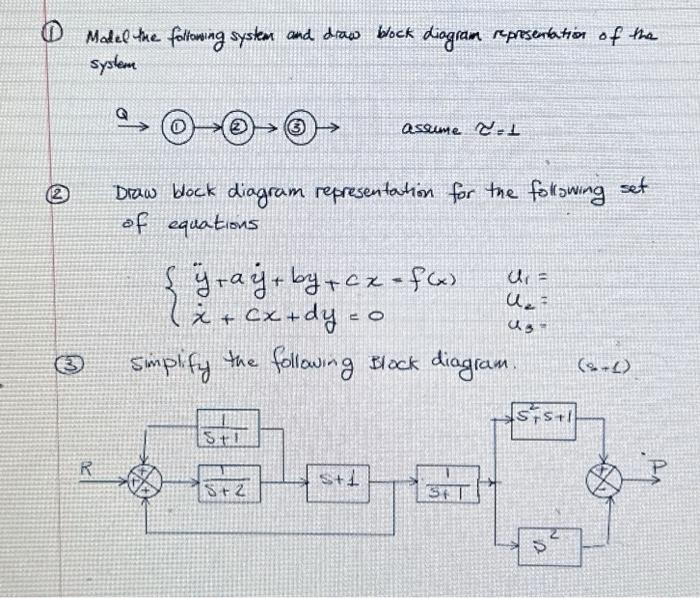 ① Model the following system and draw block diagram representation of the
system
Q ① ② ③ assume τ=1
② Draw block diagram representation for the following set
of equations
ÿ+aẏ+by+cx=f(x) u₁ =
ẋ+cx+dy=0 u₂ =
u₃ =
③ Simplify the following Block diagram. (s+1)
1/(s+1) s²+s+1
R + + + 1/(s+2) s+1 1/(s+1) + - P
s²